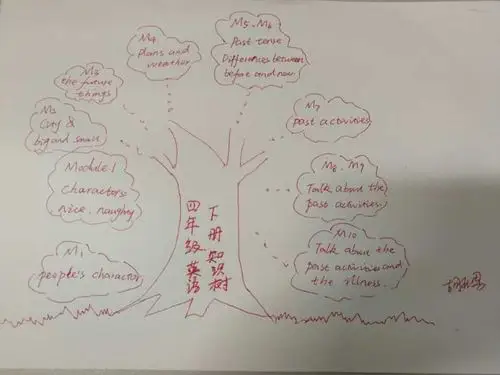 M4
Plans and
weather
M5. M6
Past tense
Differences between
before and now
M3
the future
things
M2
City &
big and small
M7
past activities
Module 1
charactors:
nice, naughty
M8. M9
Talk about the
past activities.
M1
people's charactor
M10
Talk about the
past activities and
the illness.
四年级英语
下册知识树